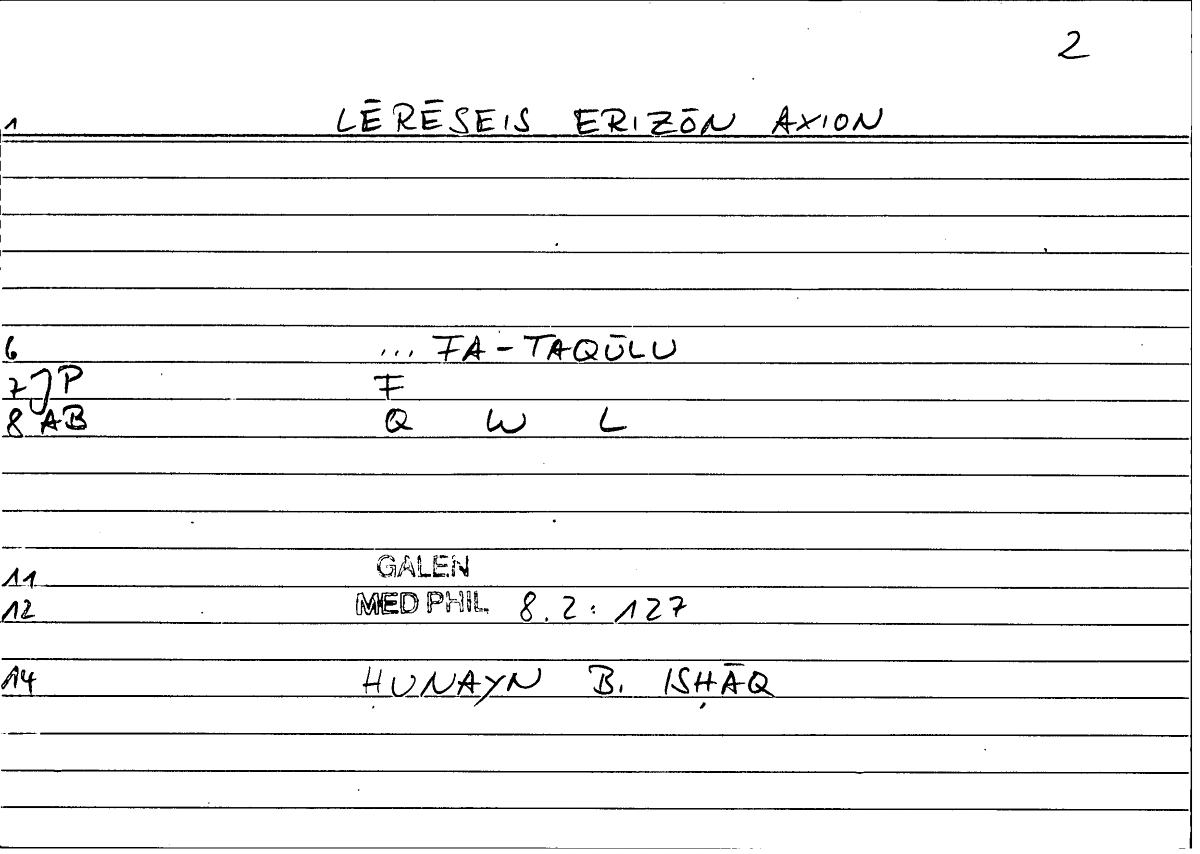 2
1 LĒRĒSEIS ERIZŌN AXION
6 ... FA-TAQŪLU
7 JP F
8 AB Q W L
11 GALEN
12 MED PHIL 8.2: 127
14 ḤUNAYN B. ISḤĀQ